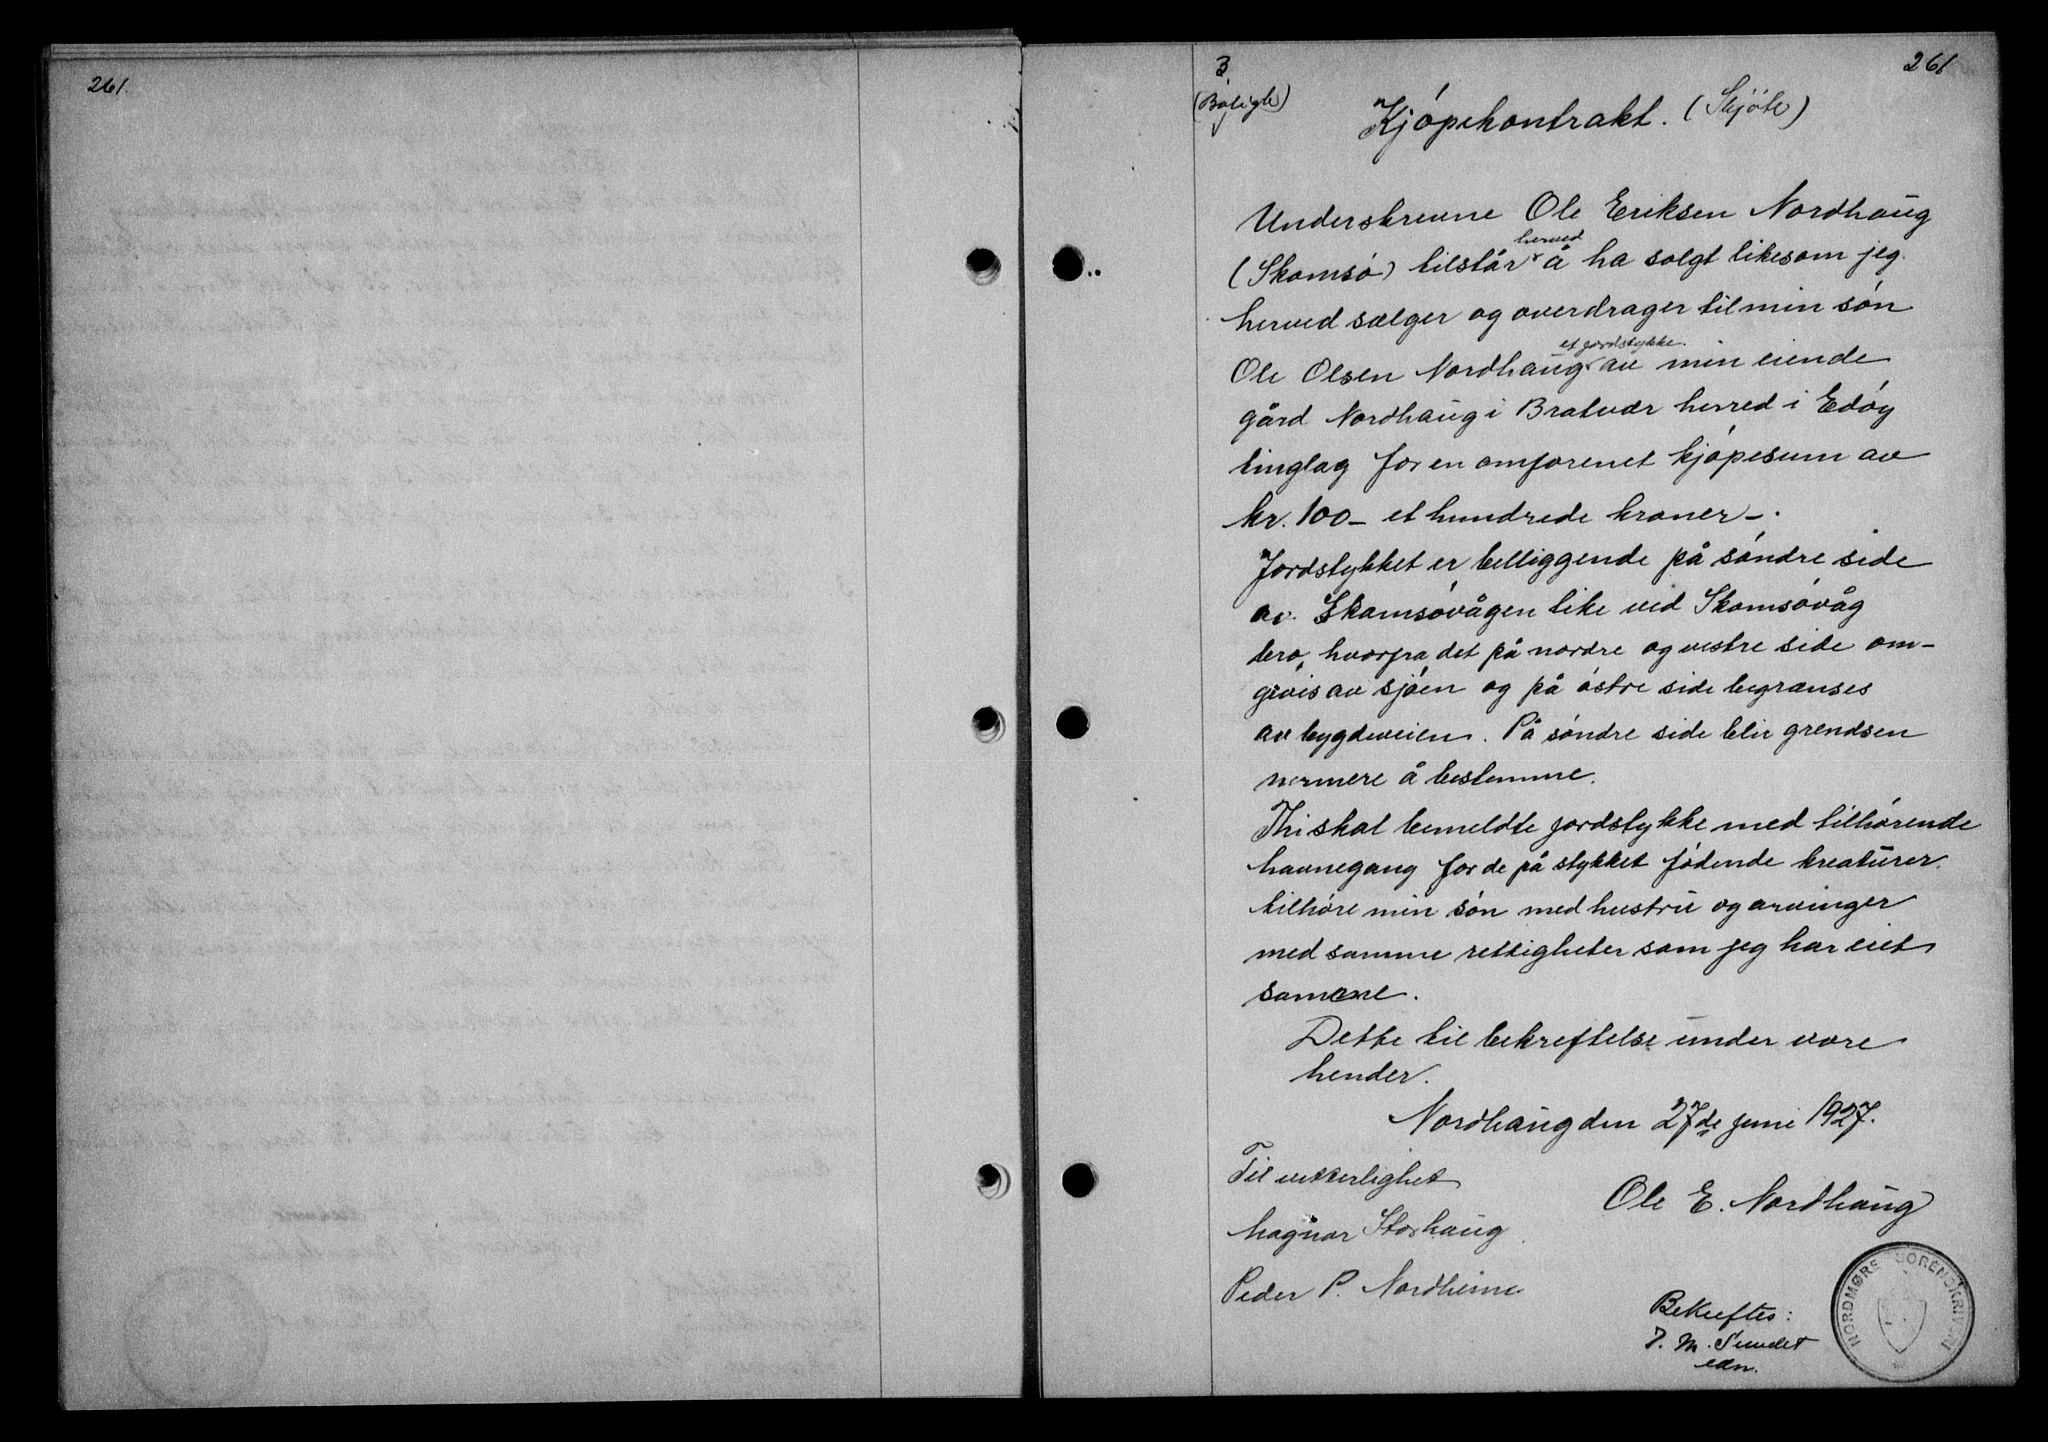 261.
3.
261
Kjópekontrakt. (Skjöte)
Underskrevne Ole Eriksen Nordhaug
(Skomsó) tilstår herved å ha solgt likesom jeg
herved sælger og overdrager til min són
Ole Olsen Nordhaug et jordstykke av min eiende
gård Nordhaug i Bratvær herred i Edóy
tinglag for en omforenet kjópesum av
kr. 100 – et hundrede kroner –.
Jordstykket er belliggende på sóndre side
av Skomsóvågen like ved Skomsóvåg
bro, hvorfra det på nordre og vestre side om-
givis av sjóen og på óstre side begrænses
av bygdeveien. På sóndre side blir grendsen
nermere å bestemme.
Thi skal bemeldte jordstykke med tilhórende
havnegang for de på stykket fódende kreaturer
tilhóre min són med hustru og arvinger
med samme rettigheter som jeg har eiet
samme.
Dette til bekreftelse under vore
hender.
Nordhaug den 27de juni 1927.
Til vitterlighet
Ole E. Nordhaug
Magnar Storhaug
Peder P. Nordheim
Bekreftes:
J. M. Sundet
edn.
NORDMØRE SORENSKRIVERI